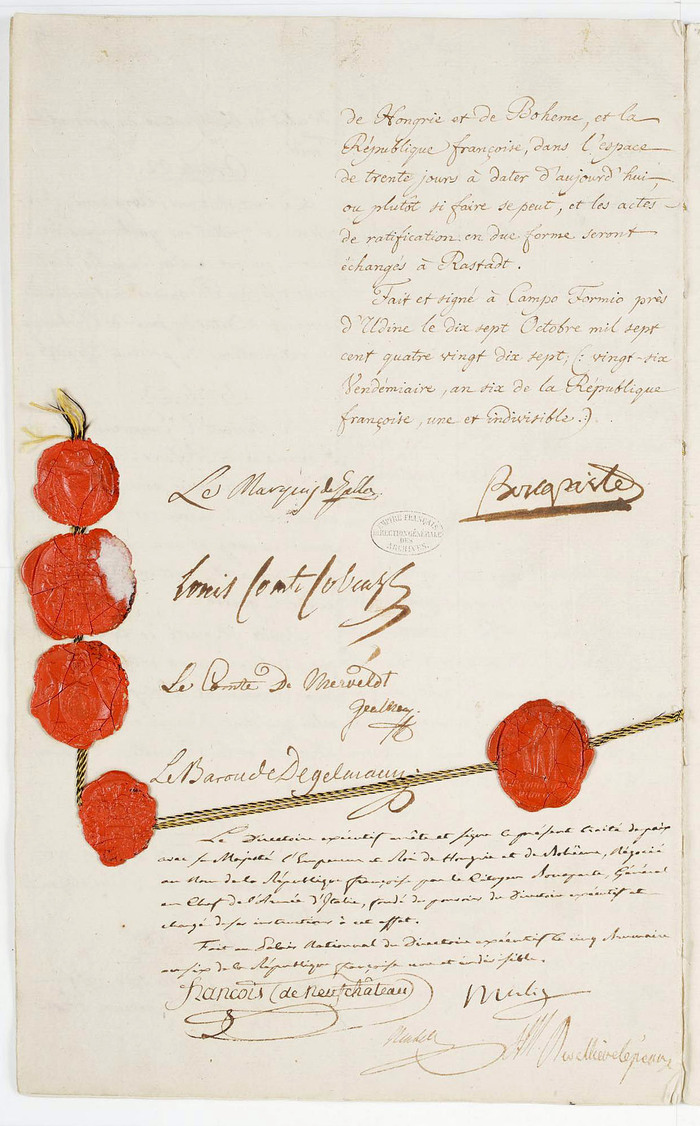 de Hongrie et de Boheme, et la
République françoise, dans l'espace
de trente jours à dater d'aujourd'hui,
ou plutôt si faire se peut, et les actes
de ratification en due forme seront
échangés à Rastadt.
Fait et signé à Campo Formio près
d'Udine le dix sept Octobre mil sept
cent quatre vingt dix sept; (: vingt-six
Vendémiaire, an six de la République
françoise, une et indivisible. :)
Le Marquis de Gallo
Bonaparte
EMPIRE FRANÇAIS
DIRECTION GÉNÉRALE
DES
ARCHIVES.
Louis Comte Cobenzl
Le Comte De Merveldt
Le Baron de Degelmann
Le Directoire exécutif arrête et signe le présent traité de paix
avec sa Majesté l'Empereur et Roi de Hongrie et de Bohême, négocié
au nom de la République françoise par le Citoyen Bonaparte, Général
en Chef de l'Armée d'Italie, fondé de pouvoirs du Directoire exécutif et
chargé de ses instructions à cet effet.
Fait au Palais National du Directoire exécutif le cinq Brumaire
an six de la République françoise une et indivisible.
françois (de neufchâteau)
Merlin
Revellière lépeaux